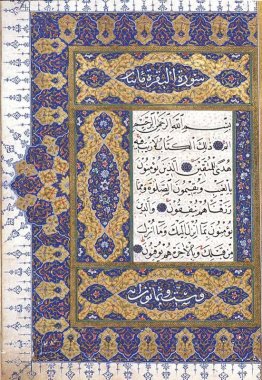 سورة البقرة مائتان
بسم الله الرحمن الرحيم
الم ذلك الكتاب لا ريب فيه
هدى للمتقين الذين يؤمنون
بالغيب ويقيمون الصلوة ومما
رزقناهم ينفقون والذين
يؤمنون بما انزل اليك وما انزل
من قبلك وبالاخرة هم يوقنون
وست وثمانون